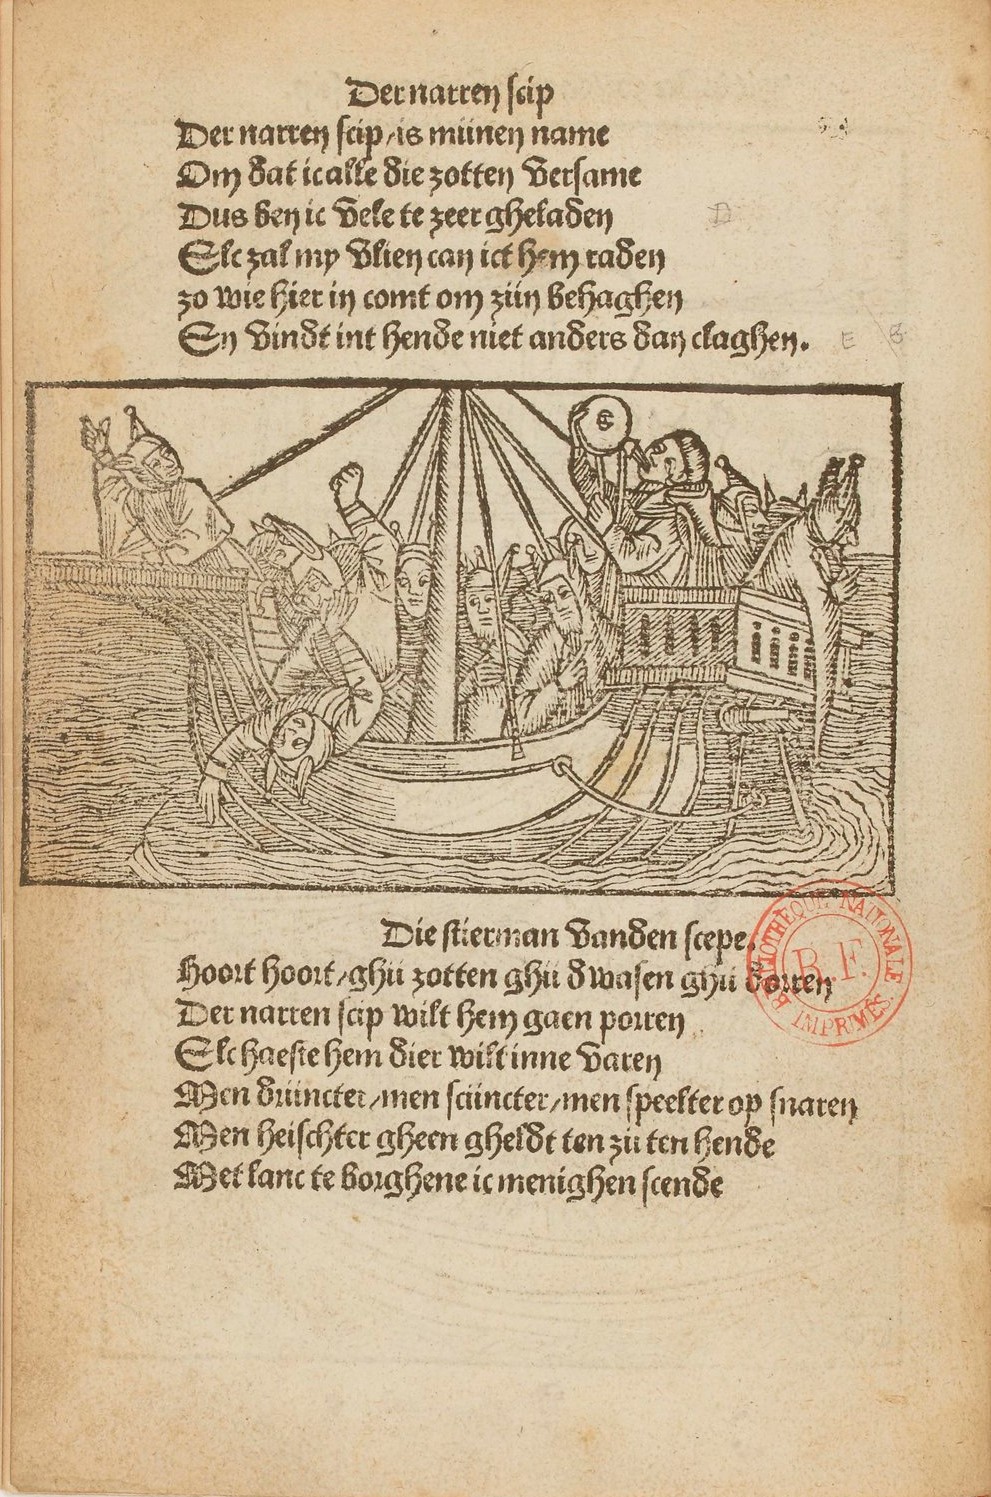 Der narren scip
Der narren scip/is miinen name
Om dat ic alle die zotten versame
Dus ben ic vele te zeer gheladen
Elc zal my vlien can ict hem raden
zo wie hier in comt om ziin behaghen
En vindt int hende niet anders dan claghen.
Die stierman vanden scepe.
Hoort hoort/ghii zotten ghii dwasen ghii dorren
Der narren scip wilt hem gaen porren
Elc haeste hem dier wilt inne varen
Men driincter/men sciincter/men speelter op snaren
Men heischter gheen gheldt ten zii ten hende
Met lanc te borghene ic menighen scende
BIBLIOTHÈQUE NATIONALE
R.F.
IMPRIMÉS